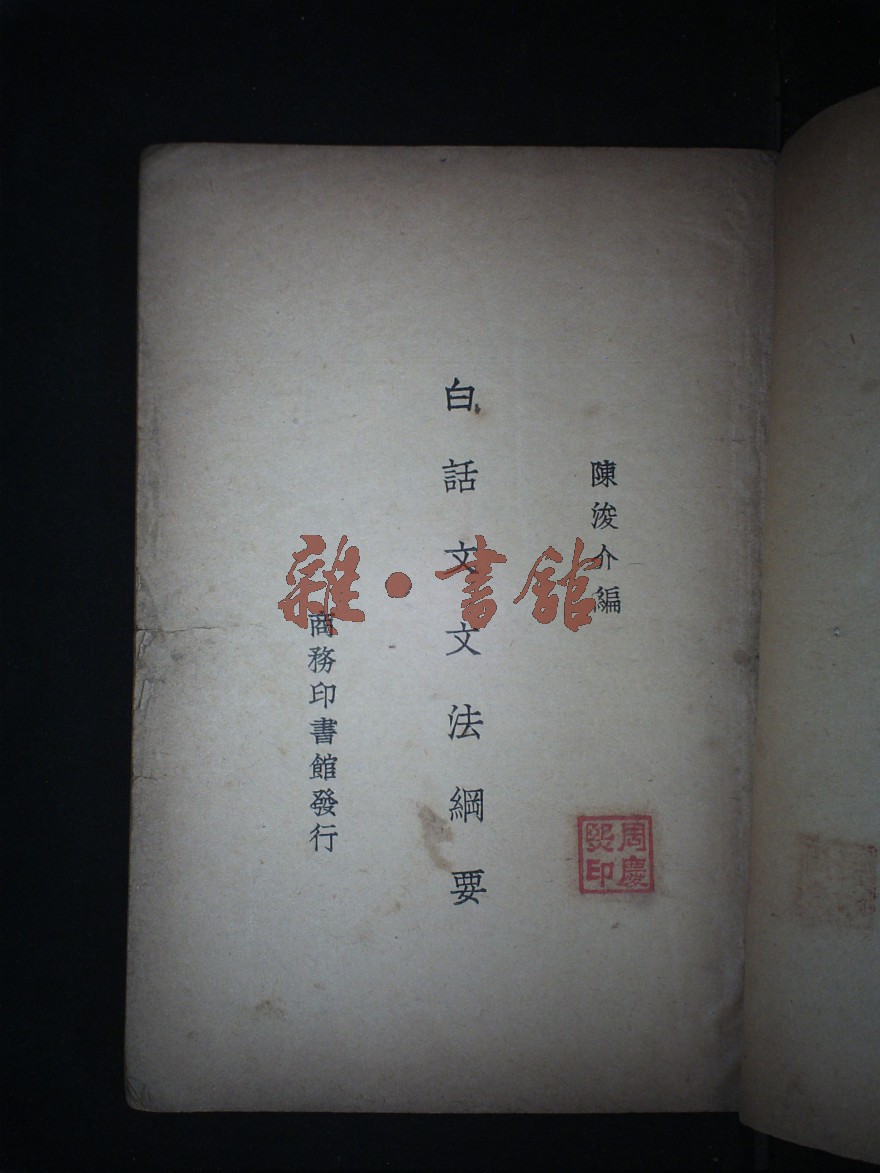 陳浚介編
白話文文法綱要
商務印書館發行
雜·書館
周慶
熙印